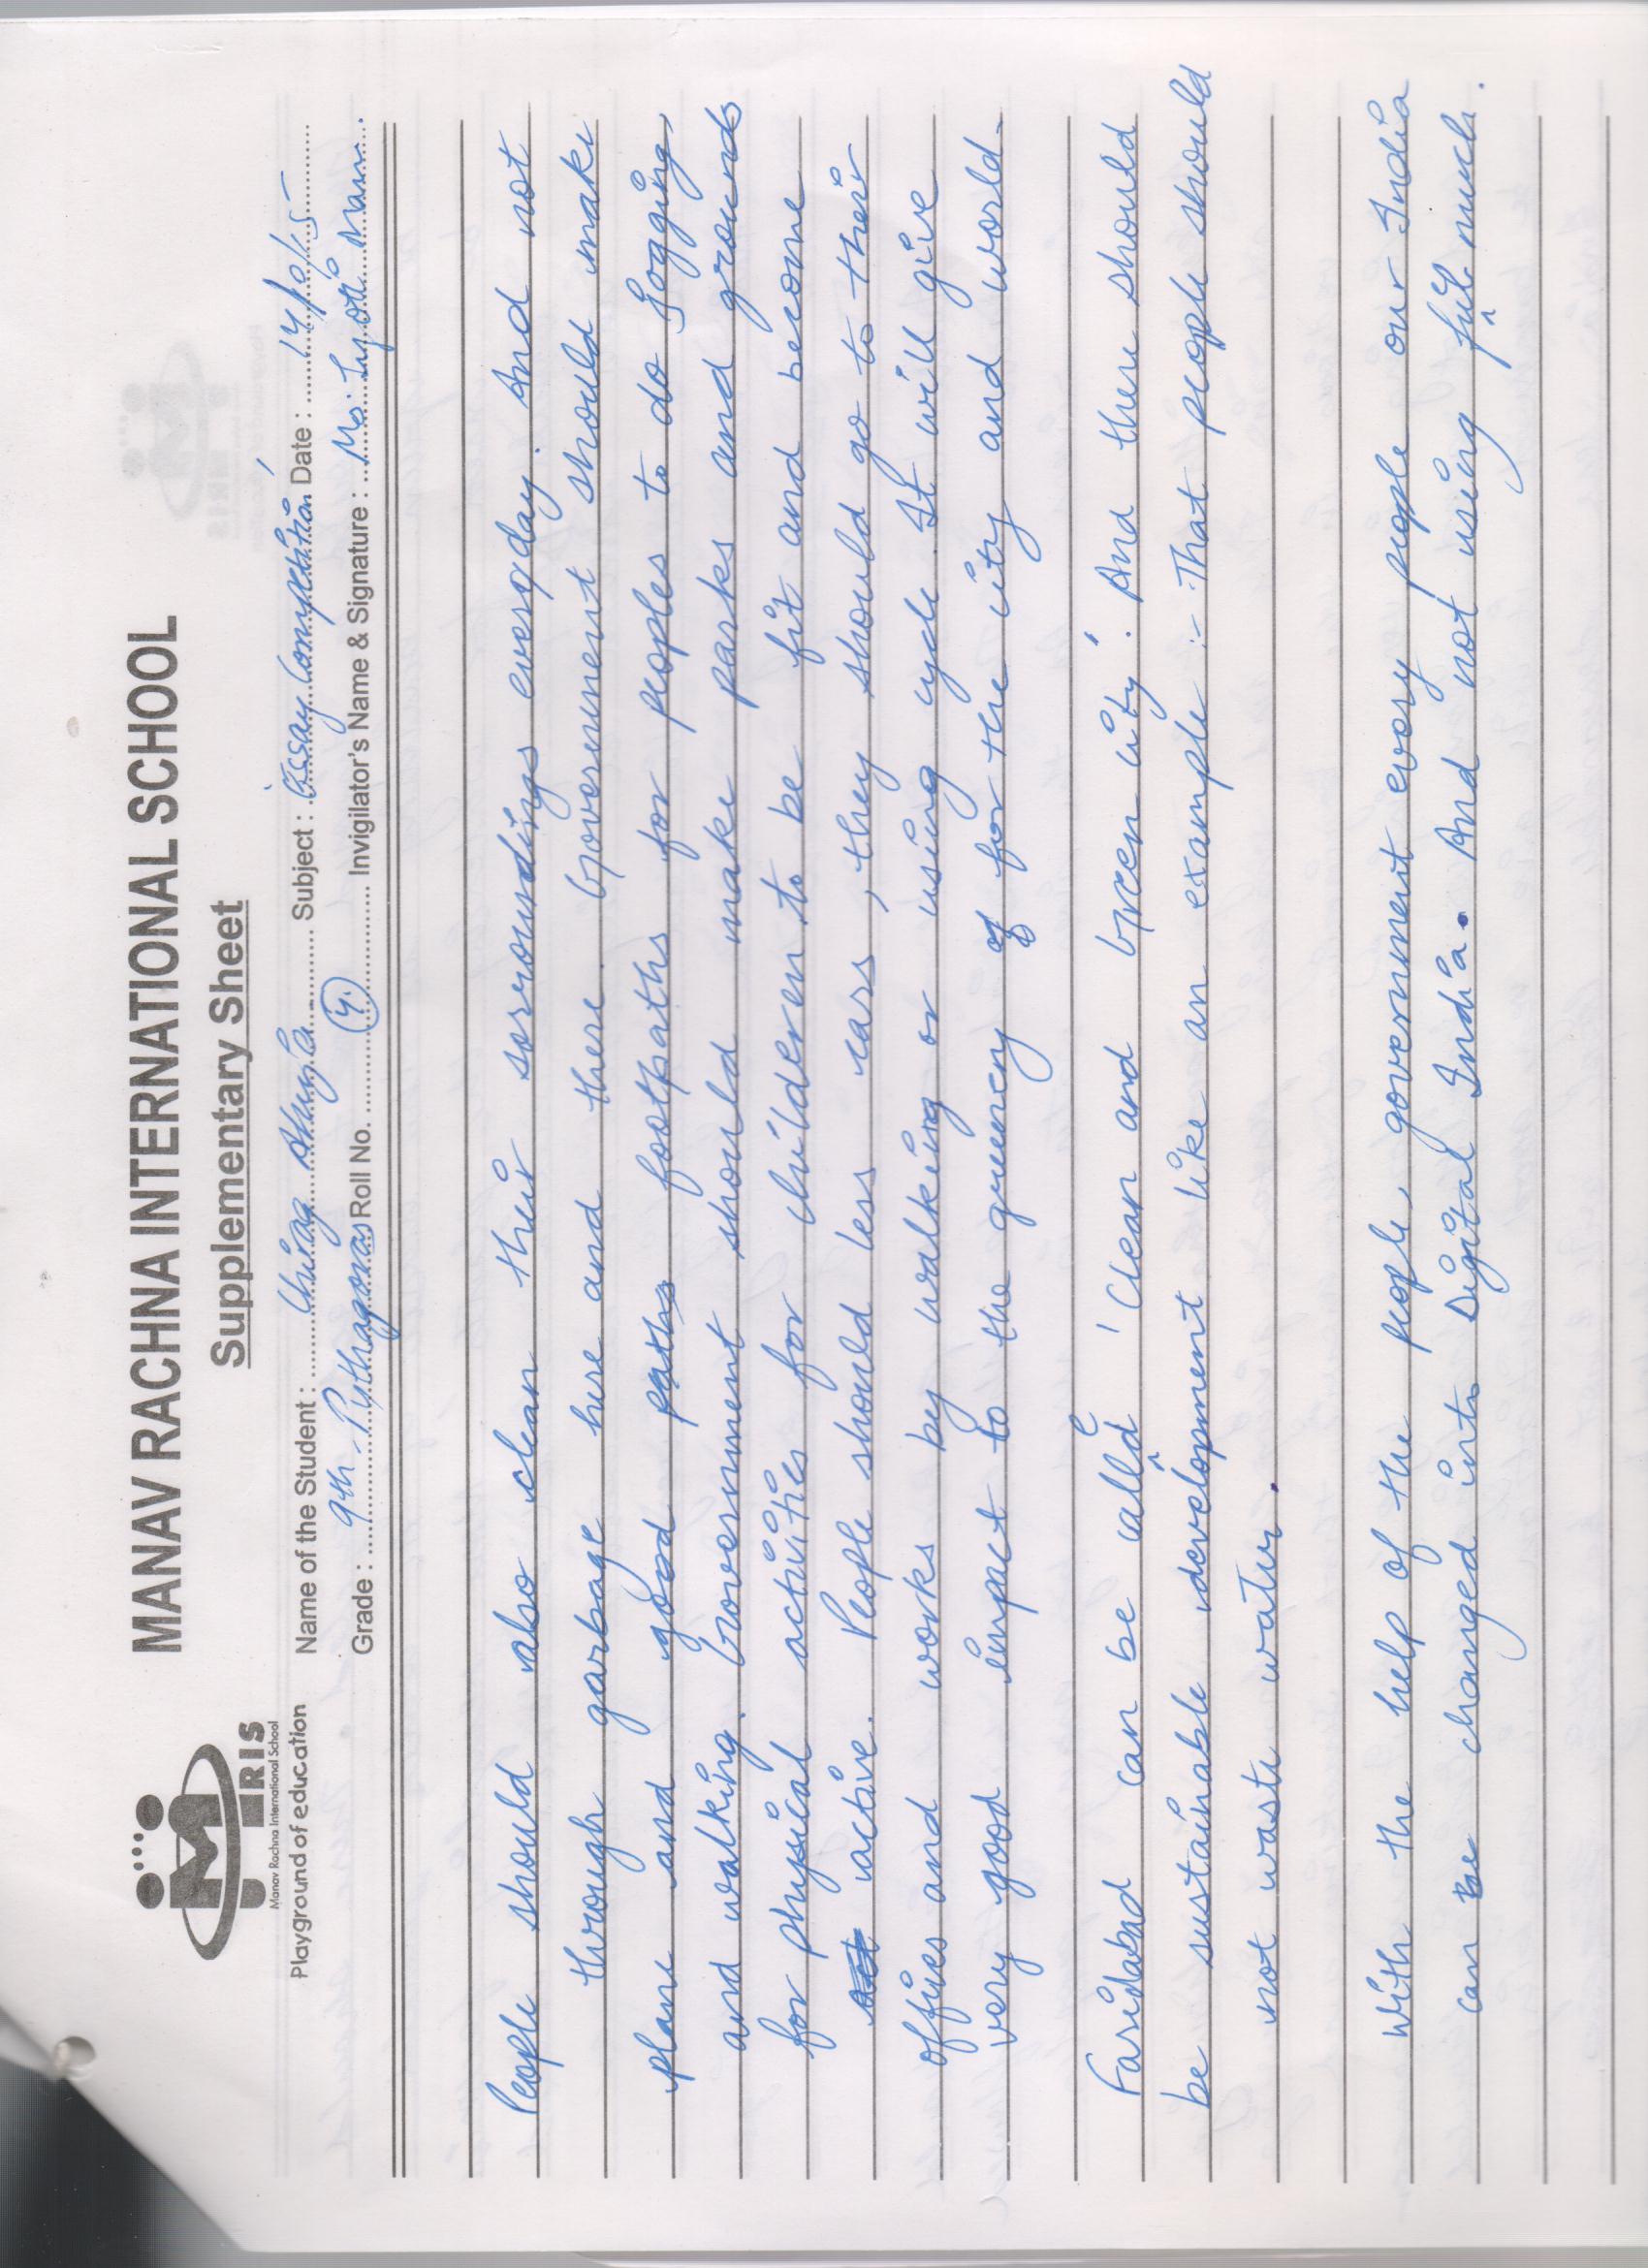 MANAV RACHNA INTERNATIONAL SCHOOL
Supplementary Sheet
MRIS
Manav Rachna International School
Playground of education
Name of the Student : Chirag Ahuja Subject : Essay Competition Date : 14/9/15
Grade : 9th - Pythagoras Roll No. 4. Invigilator's Name & Signature : Ms. Jyoti Mam.
People should also clean their sorroundings everyday. And not
through garbage here and there. Government should make
plane and good paths footpaths for peoples to do Jogging
and walking. Government should make parks and grounds
for physical actvities for childeren to be fit and become
active. People should less cars, they should go to their
offices and works by walking or using cycle. It will give
very good impact to the greenery of for the city and world.
Faridabad can be called 'Clean and Green city'. And there should
be sustainable development like an example :- That people should
not waste water.
With the help of the people, government every people our India
can be changed into Digital India. And not using much.